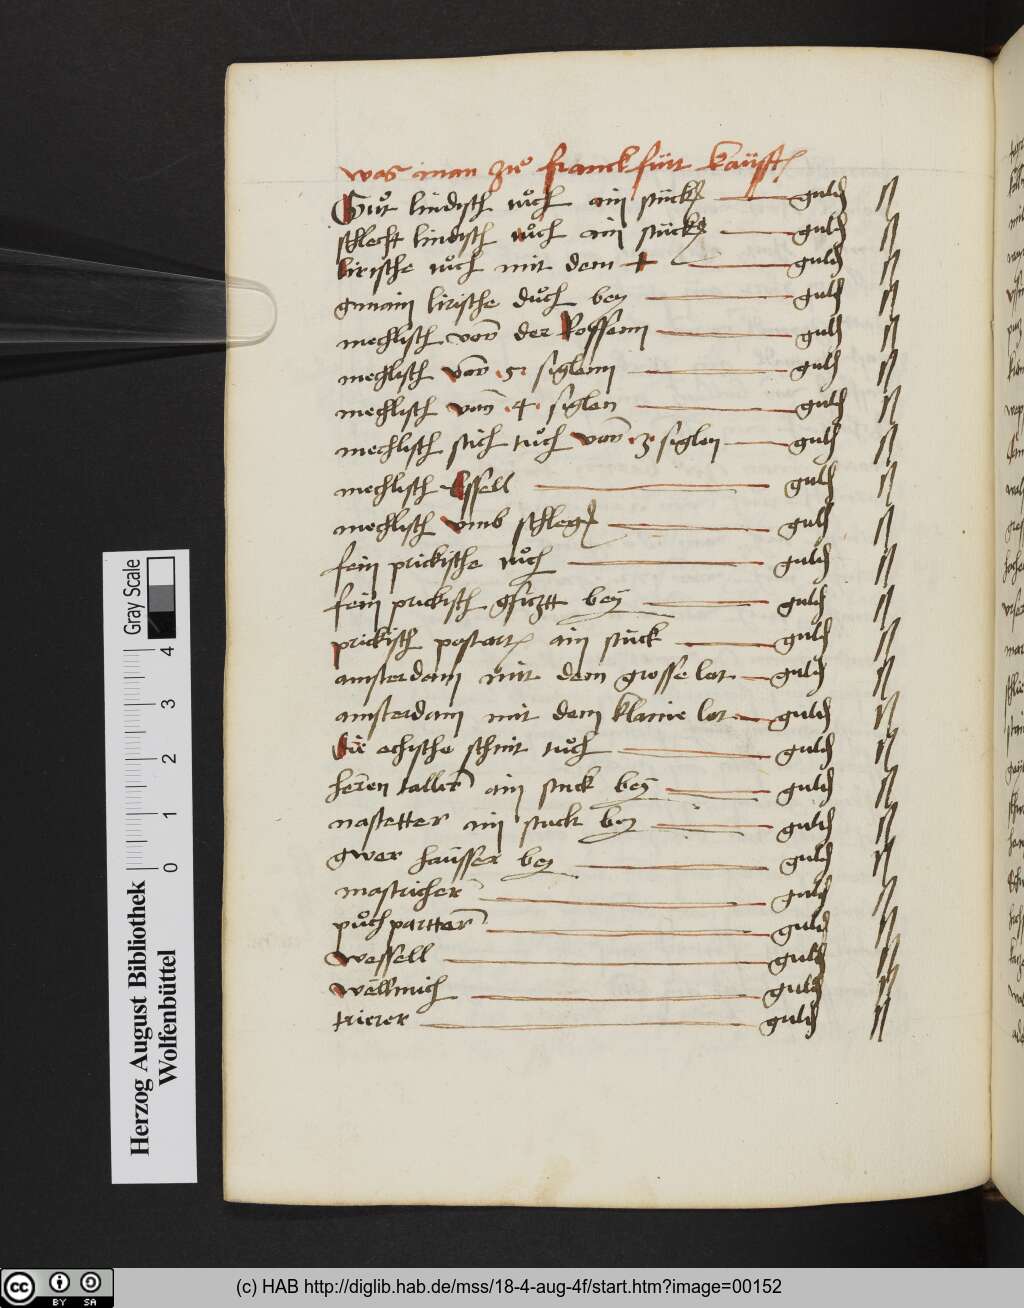 was man zuͦ franckfurt kaufft
Guͦt lindisch tuͦch ain stuck guld
schlecht lindisch tuͦch ain stuck guld
lirische tuͦch mit dem + guld
gmain lirische duͦch bey guld
mechlisch von der Rossenn guld
mechlisch von .5. siglenn guld
mechlisch von .4. siglen guld
mechlisch stich tuͦch von .3. siglen guld
mechlisch Essell guld
mechlisch umb schleg guld
fein prickische tuͦch guld
fein prickisch bey guld
prickisch postart ain stuck guld
amsterdam mit dem grosse lot guld
amsterdam mit dem klaine lot guld
Die echische schnit tuͦch guld
herren taller ain stuck bey guld
nastetter ain stuck bey guld
gwer heusser bey guld
mastricher guld
puͦchpartter guld
wessell guld
wellmich guld
trierer guld
Gray Scale
0 1 2 3 4
Herzog August Bibliothek
Wolfenbüttel
cc BY SA
(c) HAB http://diglib.hab.de/mss/18-4-aug-4f/start.htm?image=00152